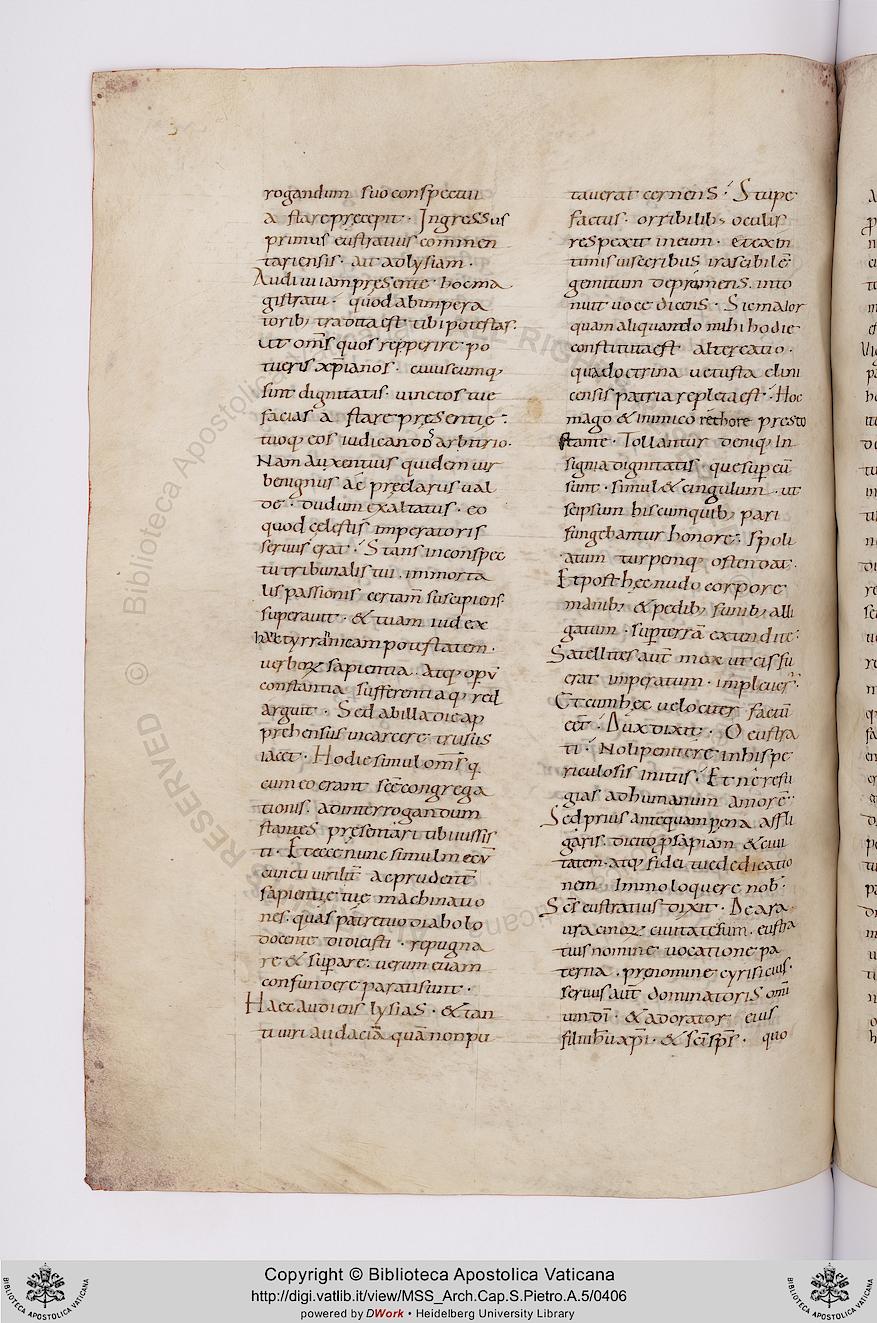 rogandum suo conspectui
a stare pręcepit· Ingressus
primus eustratius commen
tariensis· ait ad lysiam·
Audiui iam presente hoc ma
gistratui· quod ab impera
torib; tradita est tibi potestas·
ut om̅s quos repperire po
tueris xpianos· cuiuscumq;
sint dignitatis· uinctos tue
facias a stare presentię·
tuoq; eos iudicandos arbitrio·
Nam auxentius quidem uir
benignus ac preclarus ual
de· dudum exaltatus· eo
quod cęlestis imperatoris
seruus erat· Stans in conspec
tu tribunalis tui· immorta
lis passionis certam̅ suscipiens
superauit· & tuam iudex
hac tyrannicam potestatem·
uerboꝝ sapientia· atq; opu̅
constantia sufferentiaq; red
arguit· Sed ab illa die ap
prehensus in carcere trusus
iacet· Hodie simul om̅s q
cum eo erant sc̅e congrega
tionis· ad interrogandum
stantes presentari tibi iussis
ti· Et ecce nunc simul mecu̅
cuncti uirilit̅ ac prudent̅
sapientię tuę machinatio
nes· quas patre tuo diabolo
docente didicisti· repugna
re & superare· uerum etiam
confundere parati sunt·
Haec audiens lysias· & tan
ti uiri audacia̅ qua̅ non pu
tauerat cernens· Stupe
factus· orribilib; oculis
respexit in eum· et ex in
timis uisceribus irascibile̅
gemitum deprimens· into
nuit uoce dicens· Sie maior
quam aliquando mihi hodie
constituta est altercatio·
qua doctrina uetusta clini
censis patria repleta est· Hoc
mago & inimico rethore presto
stante· Tollantur deniq; in
signia dignitatis quę sup eu̅
sunt· simul & cingulum· ut
seipsum his cum quib; pari
fungebatur honore· spoli
atum turpemq; ostendat·
Et post hęc nudo corpore
manib; & pedib; funib; alli
gatum· sup terra̅ extendite·
Satellites aut̅ mox ut eis fu
erat imperatum· impleuer̅·
Et cum hęc uelociter factu̅
eēt· Dux dixit· O eustra
ti· Noli penitere in his pe
riculosis initiis· Et ne refu
gias ad humanum amore̅·
Sed prius antequam pęna affli
garis· dicito p̱sapiam & ciui
tatem· atq; fidei tuę dedicatio
nem· Immo loquere nob·
Sc̅s eustratius dixit· De ara
uracinoꝝ ciuitate sum· eustra
tius nomine uocatione pa
terna· prenomine cyrisicus·
seruus aut̅ dominatoris omi
um di̅· & adorator eius
filii ihu̅ xpi̅· & sc̅i sps̅· quo
Copyright © Biblioteca Apostolica Vaticana
http://digi.vatlib.it/view/MSS_Arch.Cap.S.Pietro.A.5/0406
powered by DWork • Heidelberg University Library